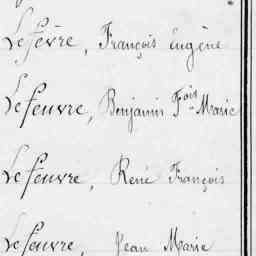 Lefèvre, François Eugène
Lefeuvre, Benjamin F.ois Marie
Lefeuvre, René François
Lefeuvre, Jean Marie